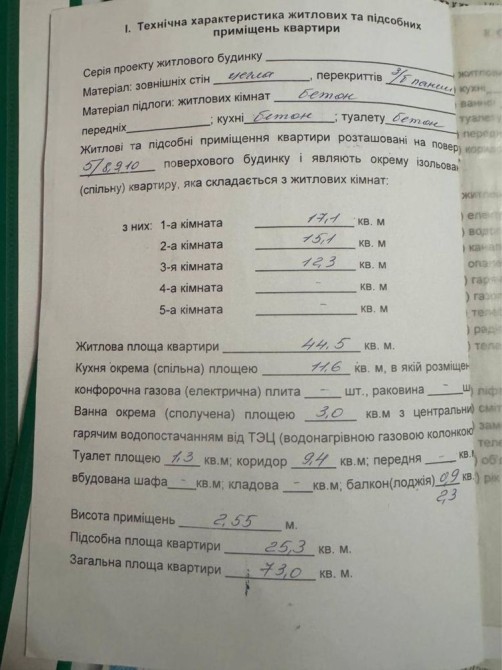 І. Технічна характеристика житлових та підсобних
приміщень квартири
Серія проекту житлового будинку
Матеріал: зовнішніх стін цегла, перекриттів з/б панелі
Матеріал підлоги: житлових кімнат бетон
передніх ; кухні бетон ; туалету бетон
Житлові та підсобні приміщення квартири розташовані на повер
5/8,9,10 поверхового будинку і являють окрему ізольова
(спільну) квартиру, яка складається з житлових кімнат:
з них: 1-а кімната 17,1 кв. м
2-а кімната 15,1 кв. м
3-я кімната 12,3 кв. м
4-а кімната - кв. м
5-а кімната - кв. м
Житлова площа квартири 44,5 кв. м.
Кухня окрема (спільна) площею 11,6 кв. м, в якій розміщен
конфорочна газова (електрична) плита - шт., раковина - ш
Ванна окрема (сполучена) площею 3,0 кв.м з центральни
гарячим водопостачанням від ТЭЦ (водонагрівною газовою колонкою
Туалет площею 1,3 кв.м; коридор 9,4 кв.м; передня - кв.
вбудована шафа - кв.м; кладова - кв.м; балкон(лоджія) 0,9 кв.
2,3
Висота приміщень 2,55 м.
Підсобна площа квартири 25,3 кв. м.
Загальна площа квартири 73,0 кв. м.